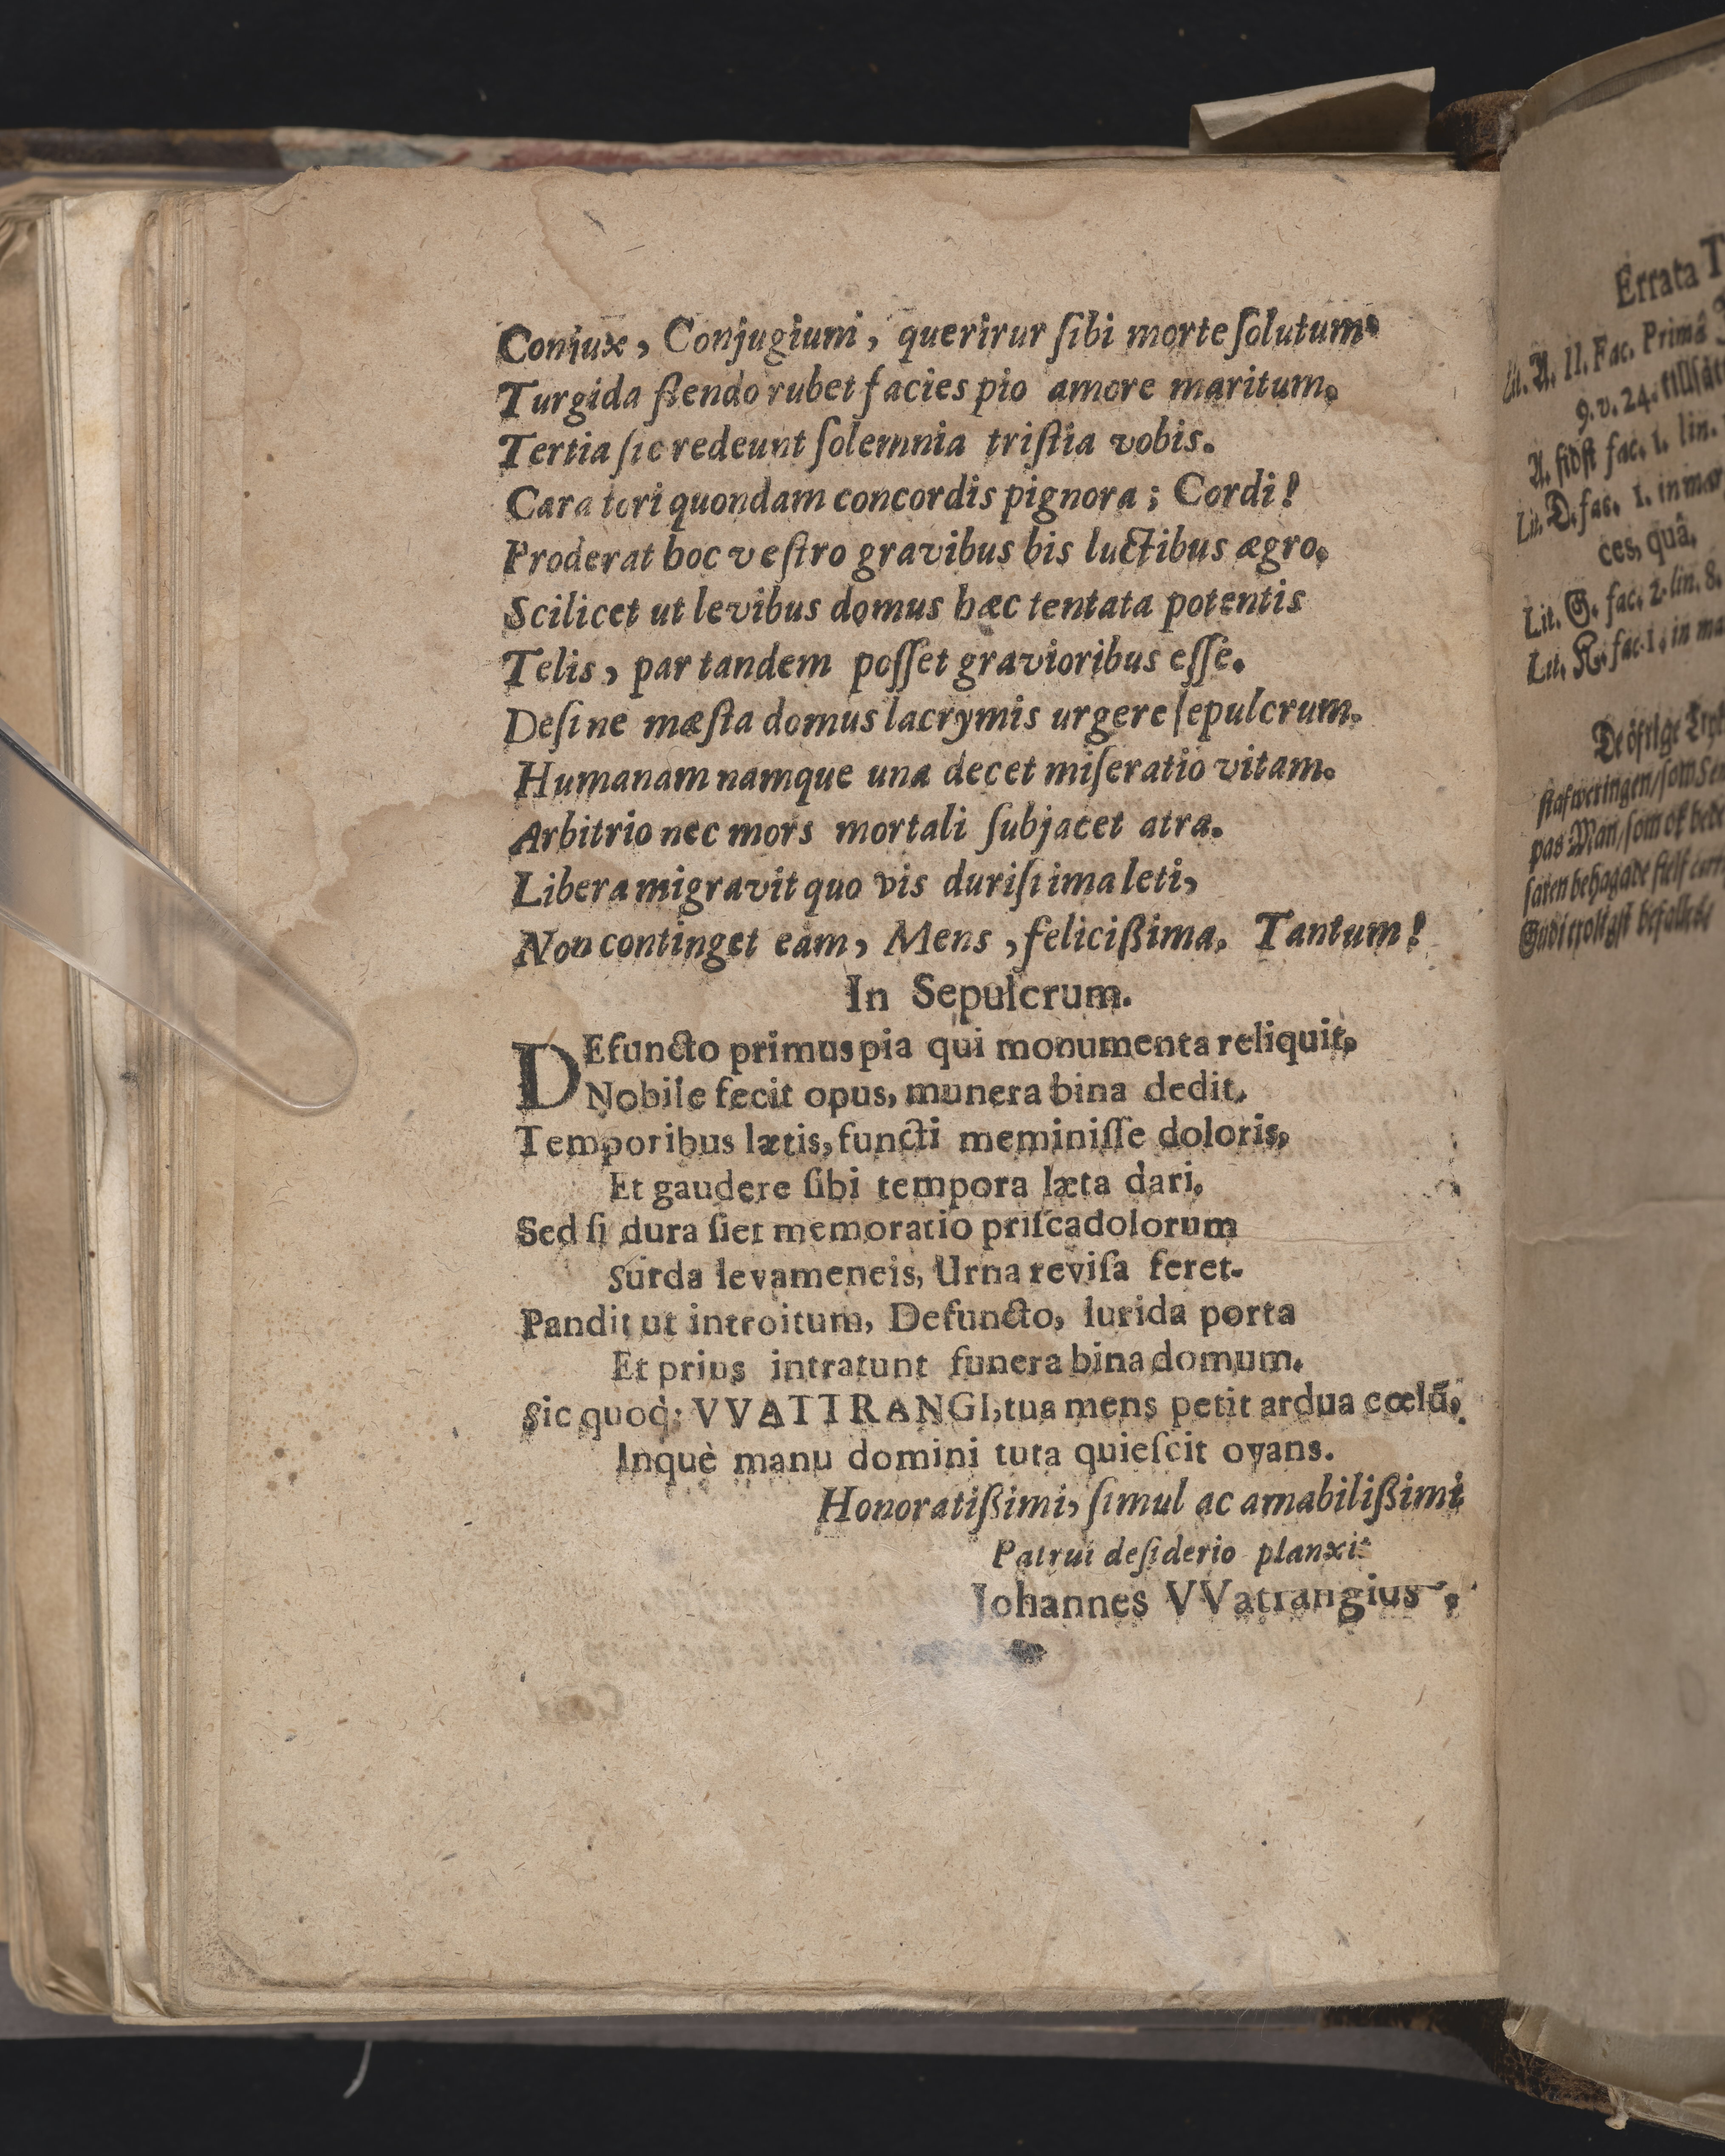 Conjux, Conjugium, querirur ſibi morte ſolutum.
Turgida flendo rubet facies pio amore maritum.
Tertia ſic redeunt ſolemnia triſtia vobis.
Cara tori quondam concordis pignora; Cordi!
Proderat hoc veſtro gravibus bis luctibus ægro.
Scilicet ut levibus domus hæc tentata potentis
Telis, par tandem poſſet gravioribus eſſe.
Deſine mæſta domus lacrymis urgere ſepulcrum.
Humanam namque una decet miſeratio vitam.
Arbitrio nec mors mortali ſubjacet atra.
Libera migravit quo vis duriſſima leti,
Non continget eam, Mens, feliciſsima. Tantum!
In Sepulcrum.
DEfuncto primus pia qui monumenta reliquit,
Nobile fecit opus, munera bina dedit,
Temporibus lætis, functi meminiſſe doloris,
Et gaudere ſibi tempora læta dari.
Sed ſi dura ſiet memoratio priſca dolorum
Surda levameneis, Urna reviſa feret.
Pandit ut introitum, Defuncto, lurida porta
Et prius intratunt funera bina domum.
Sic quoq; VVATTRANGI, tua mens petit ardua cœlū,
Inquè manu domini tuta quieſcit ovans.
Honoratißimi, ſimul ac amabilißimi
Patrui deſiderio planxit
Johannes VVatrangius.
Errata
Lit. A. II. Fac. Primâ
9. v. 24.
A. ſidſt fac. 1. lin.
Lit. D. fac. 1. in mar
ces, quâ,
Lit. G. fac. 2. lin. 8.
Lit. K. fac. 1. in ma
De öfrige